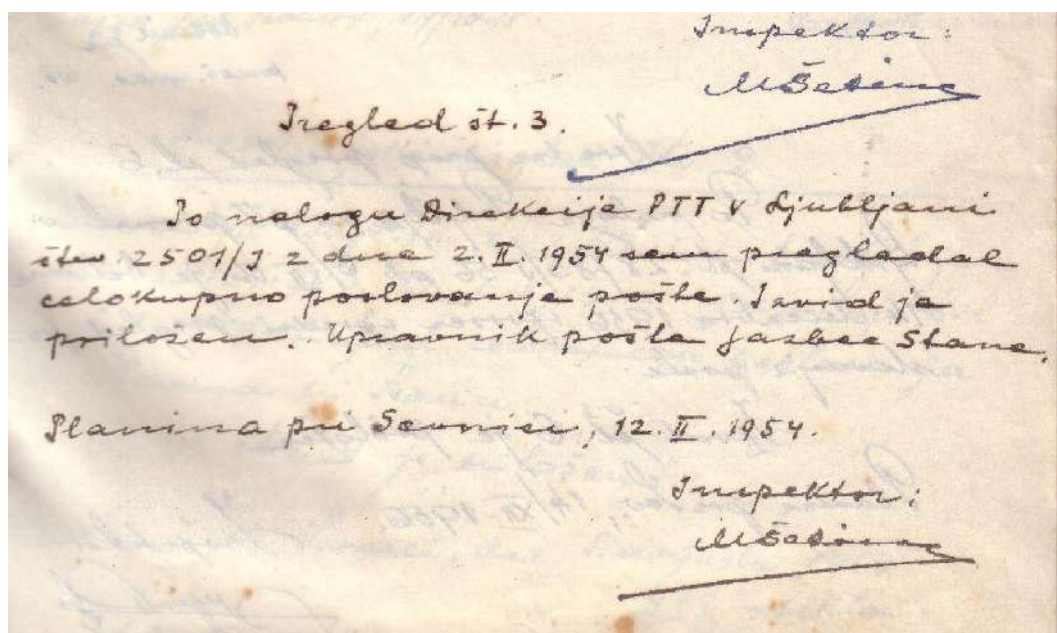 Inspektor:
MŠetina
Pregled št. 3.
Po nalogu Direkcije PTT v Ljubljani
štev 2501/I z dne 2. II. 1954 sem pregledal
celokupno poslovanje pošte. Izvid je
priložen. Upravnik pošte Jazbec Stane.
Planina pri Sevnici, 12. II. 1954.
Inspektor:
MŠetina